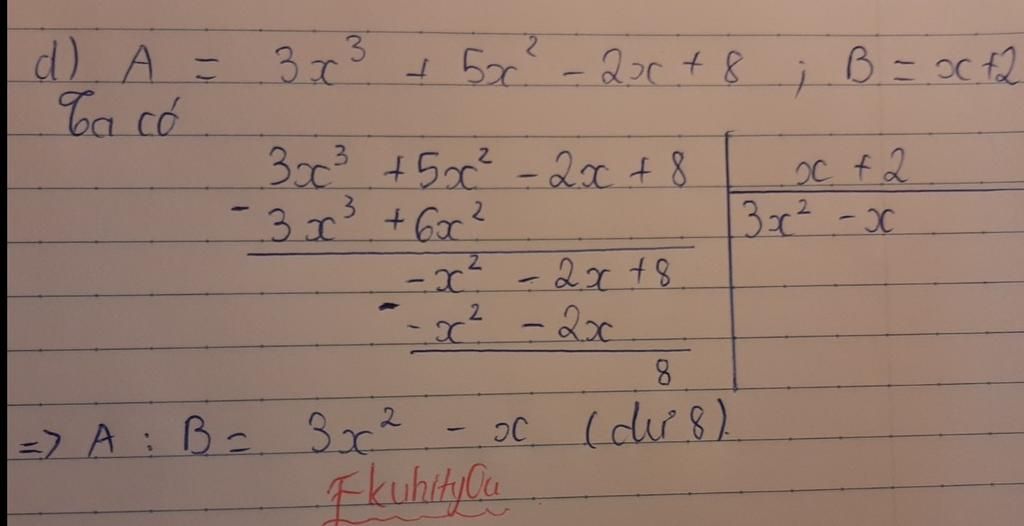 d) A = 3x³ + 5x² - 2x + 8 ; B = x+2
Ta có
3x³ + 5x² - 2x + 8 | x + 2
- 3x³ + 6x² | 3x² - x
-x² - 2x + 8
- -x² - 2x
8
=> A : B = 3x² - x (dư 8).